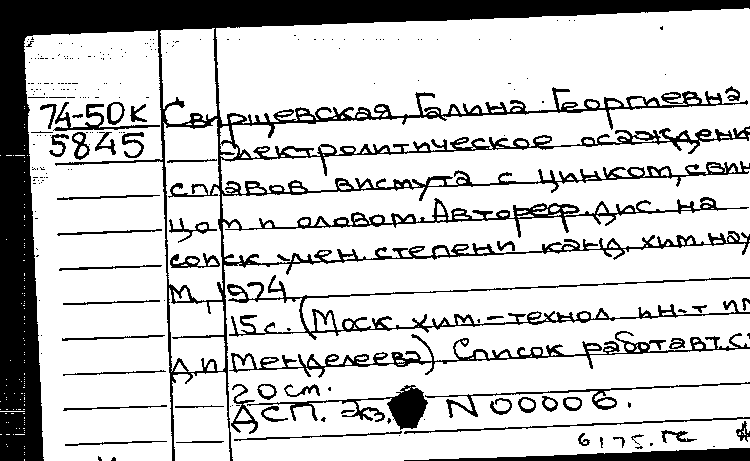 74-50К Свирщевская, Галина Георгиевна
5845 Электролитическое осаждени
сплавов висмута с цинком, свин
цом и оловом. Автореф. дис. на
соиск. учен. степени канд. хим. нау
М., 1974.
15 с. (Моск. хим.-технол. ин-т
Д.И. Менделеева). Список работ авт. с
20 см.
ДСП. Экз. N 00006.